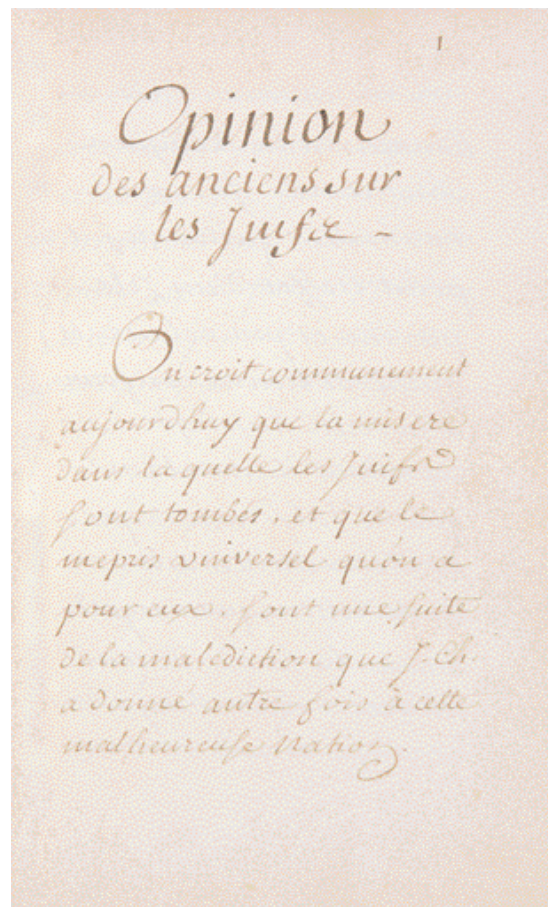 1
Opinion
des anciens sur
les Juifs -
On croit communement
aujourdhuy que la misere
dans laquelle les Juifs
sont tombés, et que le
mepris vniversel qu'on a
pour eux, sont une suite
de la malediction que J. Ch.
a donné autre fois à cette
malheureuse Nation.